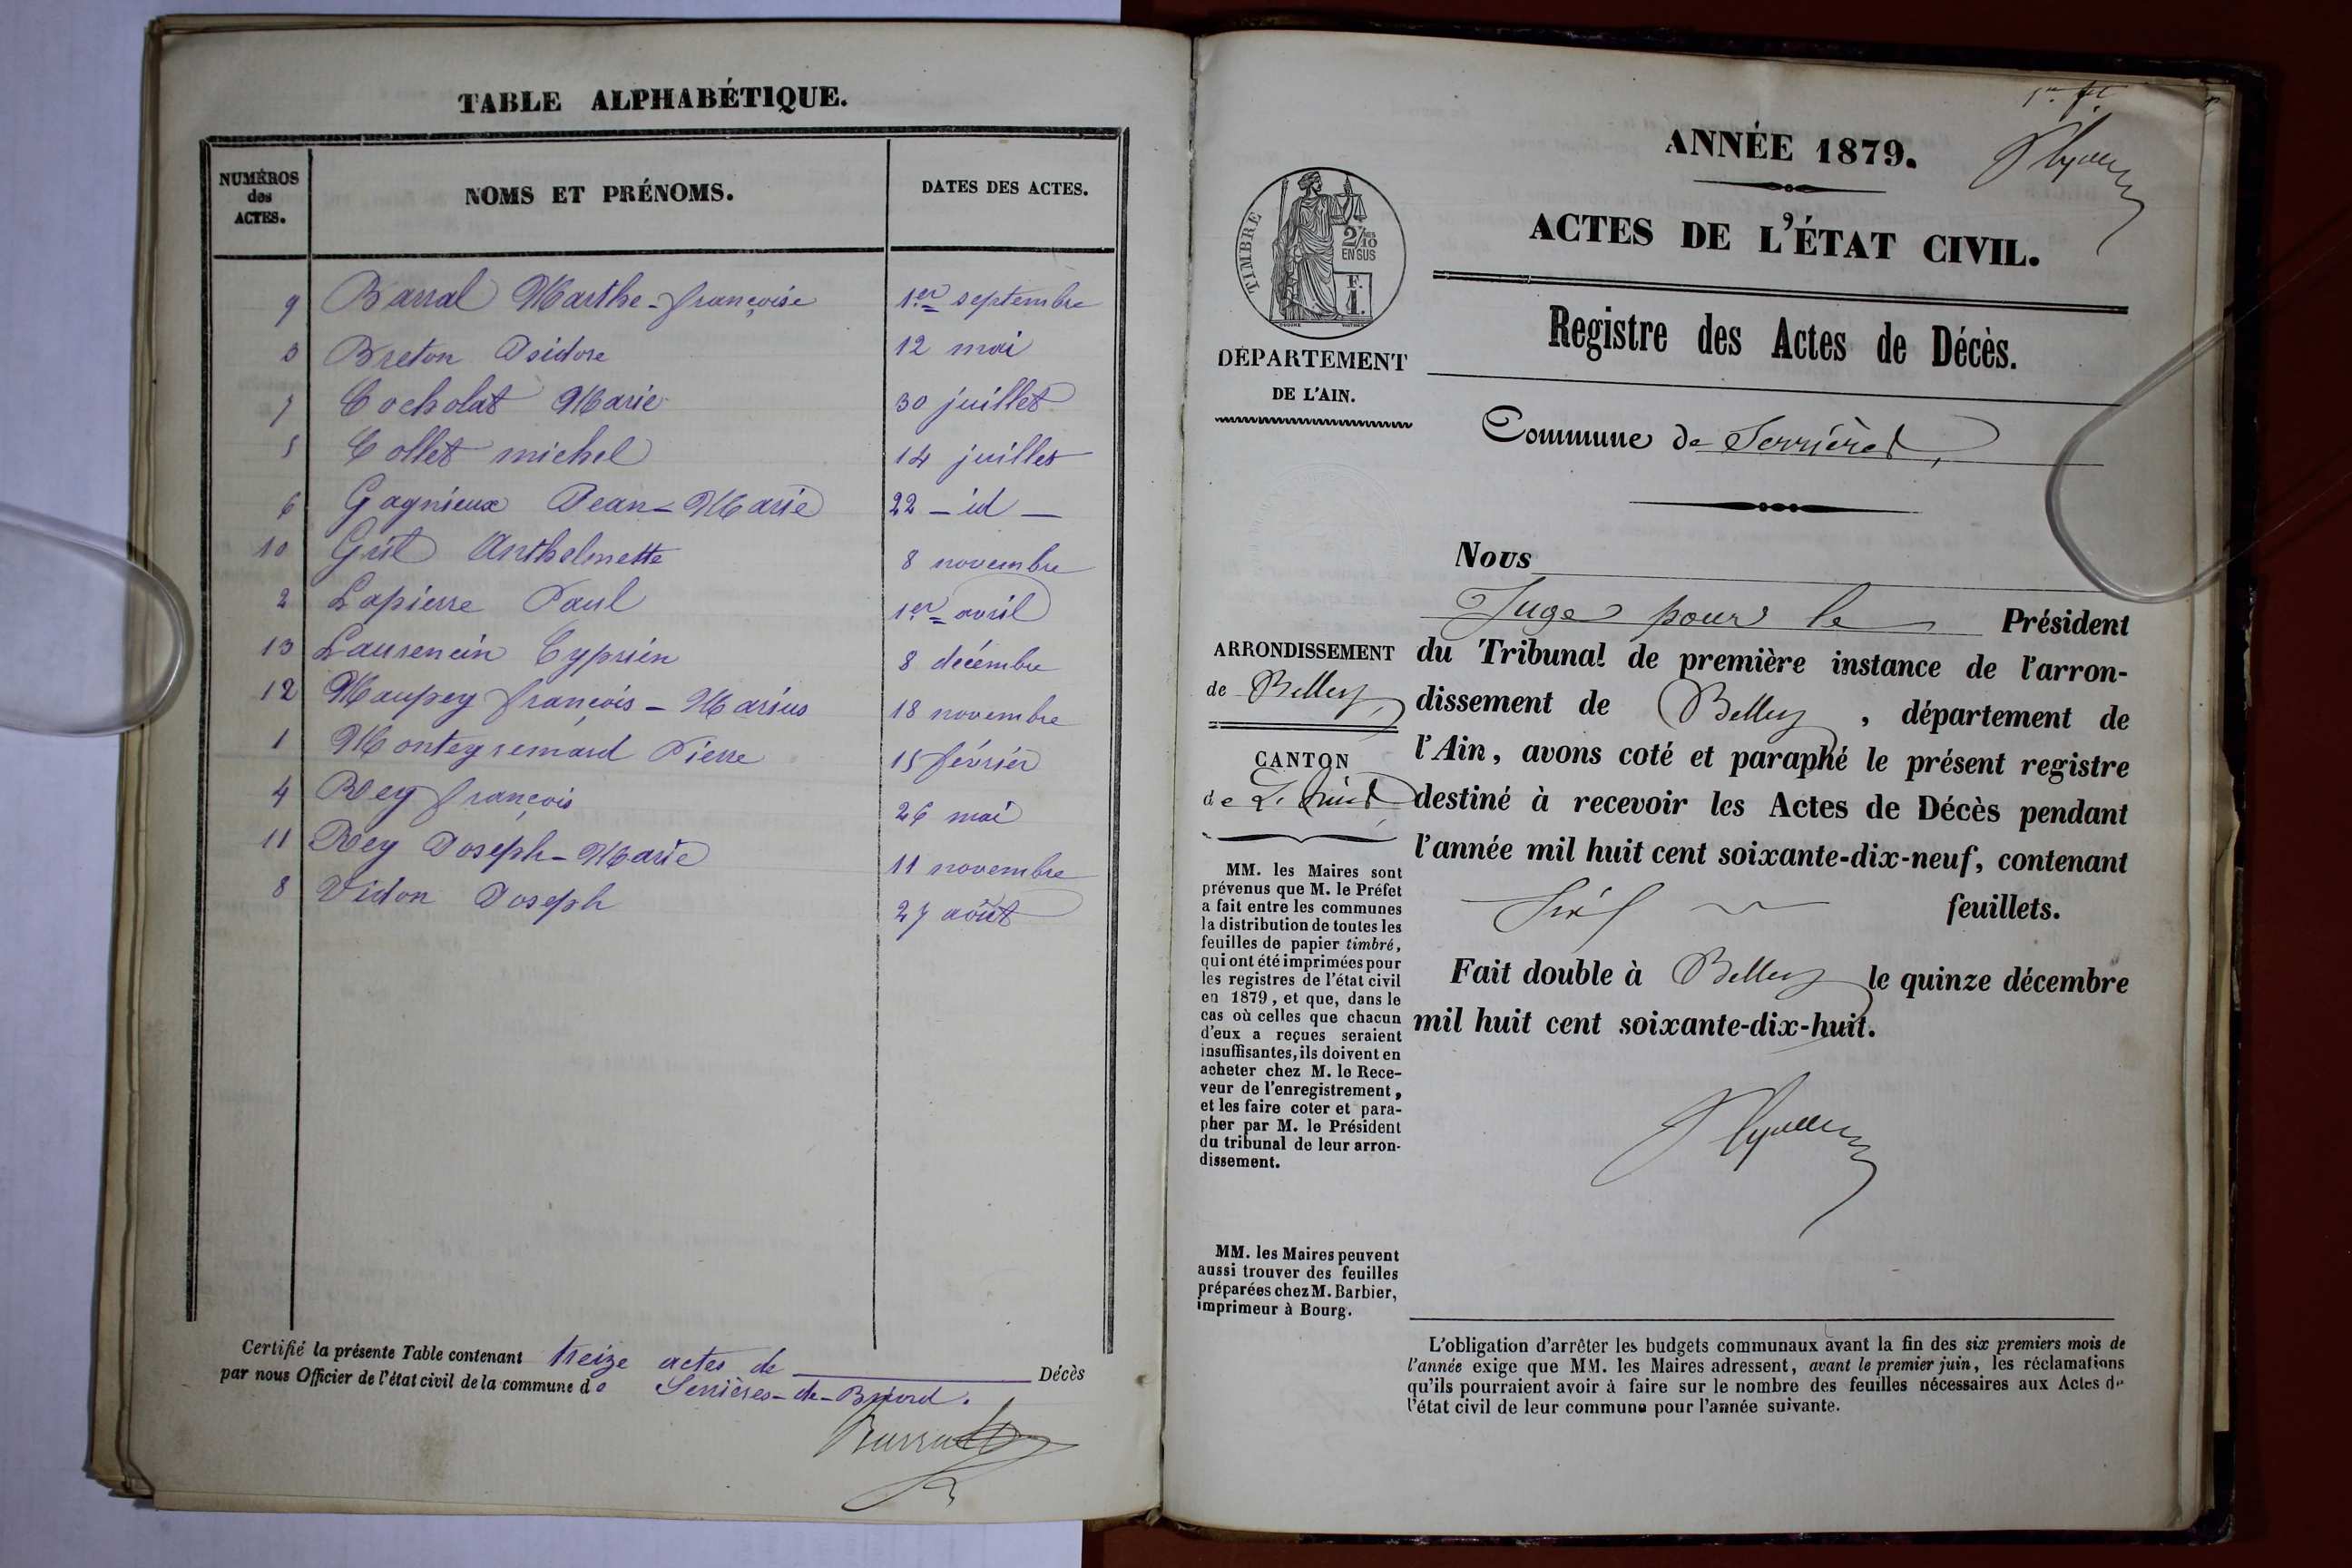 TABLE ALPHABÉTIQUE.
NUMÉROS
des
ACTES.
NOMS ET PRÉNOMS.
DATES DES ACTES.
9 Barral Marthe-françoise 1er septembre
3 Breton Isidore 12 mai
7 Cocholat Marie 30 juillet
5 Collet michel 14 juillet
6 Gagnieux Jean-Marie 22 - id -
10 Anthelmette 8 novembre
2 Lapierre Paul 1er avril
13 Laurencin Cyprien 8 décembre
12 Maupey françois-Marius 18 novembre
1 Monteyremard Pierre 15 février
4 Rey françois 26 mai
11 Rey Joseph-Marie 11 novembre
8 Vidon Joseph 27 août
Certifié la présente Table contenant treize actes de Décès
par nous Officier de l'état civil de la commune de Serrières-de-Briord.
ANNÉE 1879.
ACTES DE L'ÉTAT CIVIL.
TIMBRE
2/10es
EN SUS
F.
1.
DÉPARTEMENT
DE L'AIN.
Registre des Actes de Décès.
Commune de Serrières,
Nous
Juge pour le Président
du Tribunal de première instance de l'arron-
dissement de Belley, département de
l'Ain, avons coté et paraphé le présent registre
destiné à recevoir les Actes de Décès pendant
l'année mil huit cent soixante-dix-neuf, contenant
feuillets.
Fait double à Belley le quinze décembre
mil huit cent soixante-dix-huit.
ARRONDISSEMENT
de Belley,
CANTON
de
MM. les Maires sont
prévenus que M. le Préfet
a fait entre les communes
la distribution de toutes les
feuilles de papier timbré,
qui ont été imprimées pour
les registres de l'état civil
en 1879, et que, dans le
cas où celles que chacun
d'eux a reçues seraient
insuffisantes, ils doivent en
acheter chez M. le Rece-
veur de l'enregistrement,
et les faire coter et para-
pher par M. le Président
du tribunal de leur arron-
dissement.
MM. les Maires peuvent
aussi trouver des feuilles
préparées chez M. Barbier,
imprimeur à Bourg.
L'obligation d'arrêter les budgets communaux avant la fin des six premiers mois de
l'année exige que MM. les Maires adressent, avant le premier juin, les réclamations
qu'ils pourraient avoir à faire sur le nombre des feuilles nécessaires aux Actes de
l'état civil de leur commune pour l'année suivante.